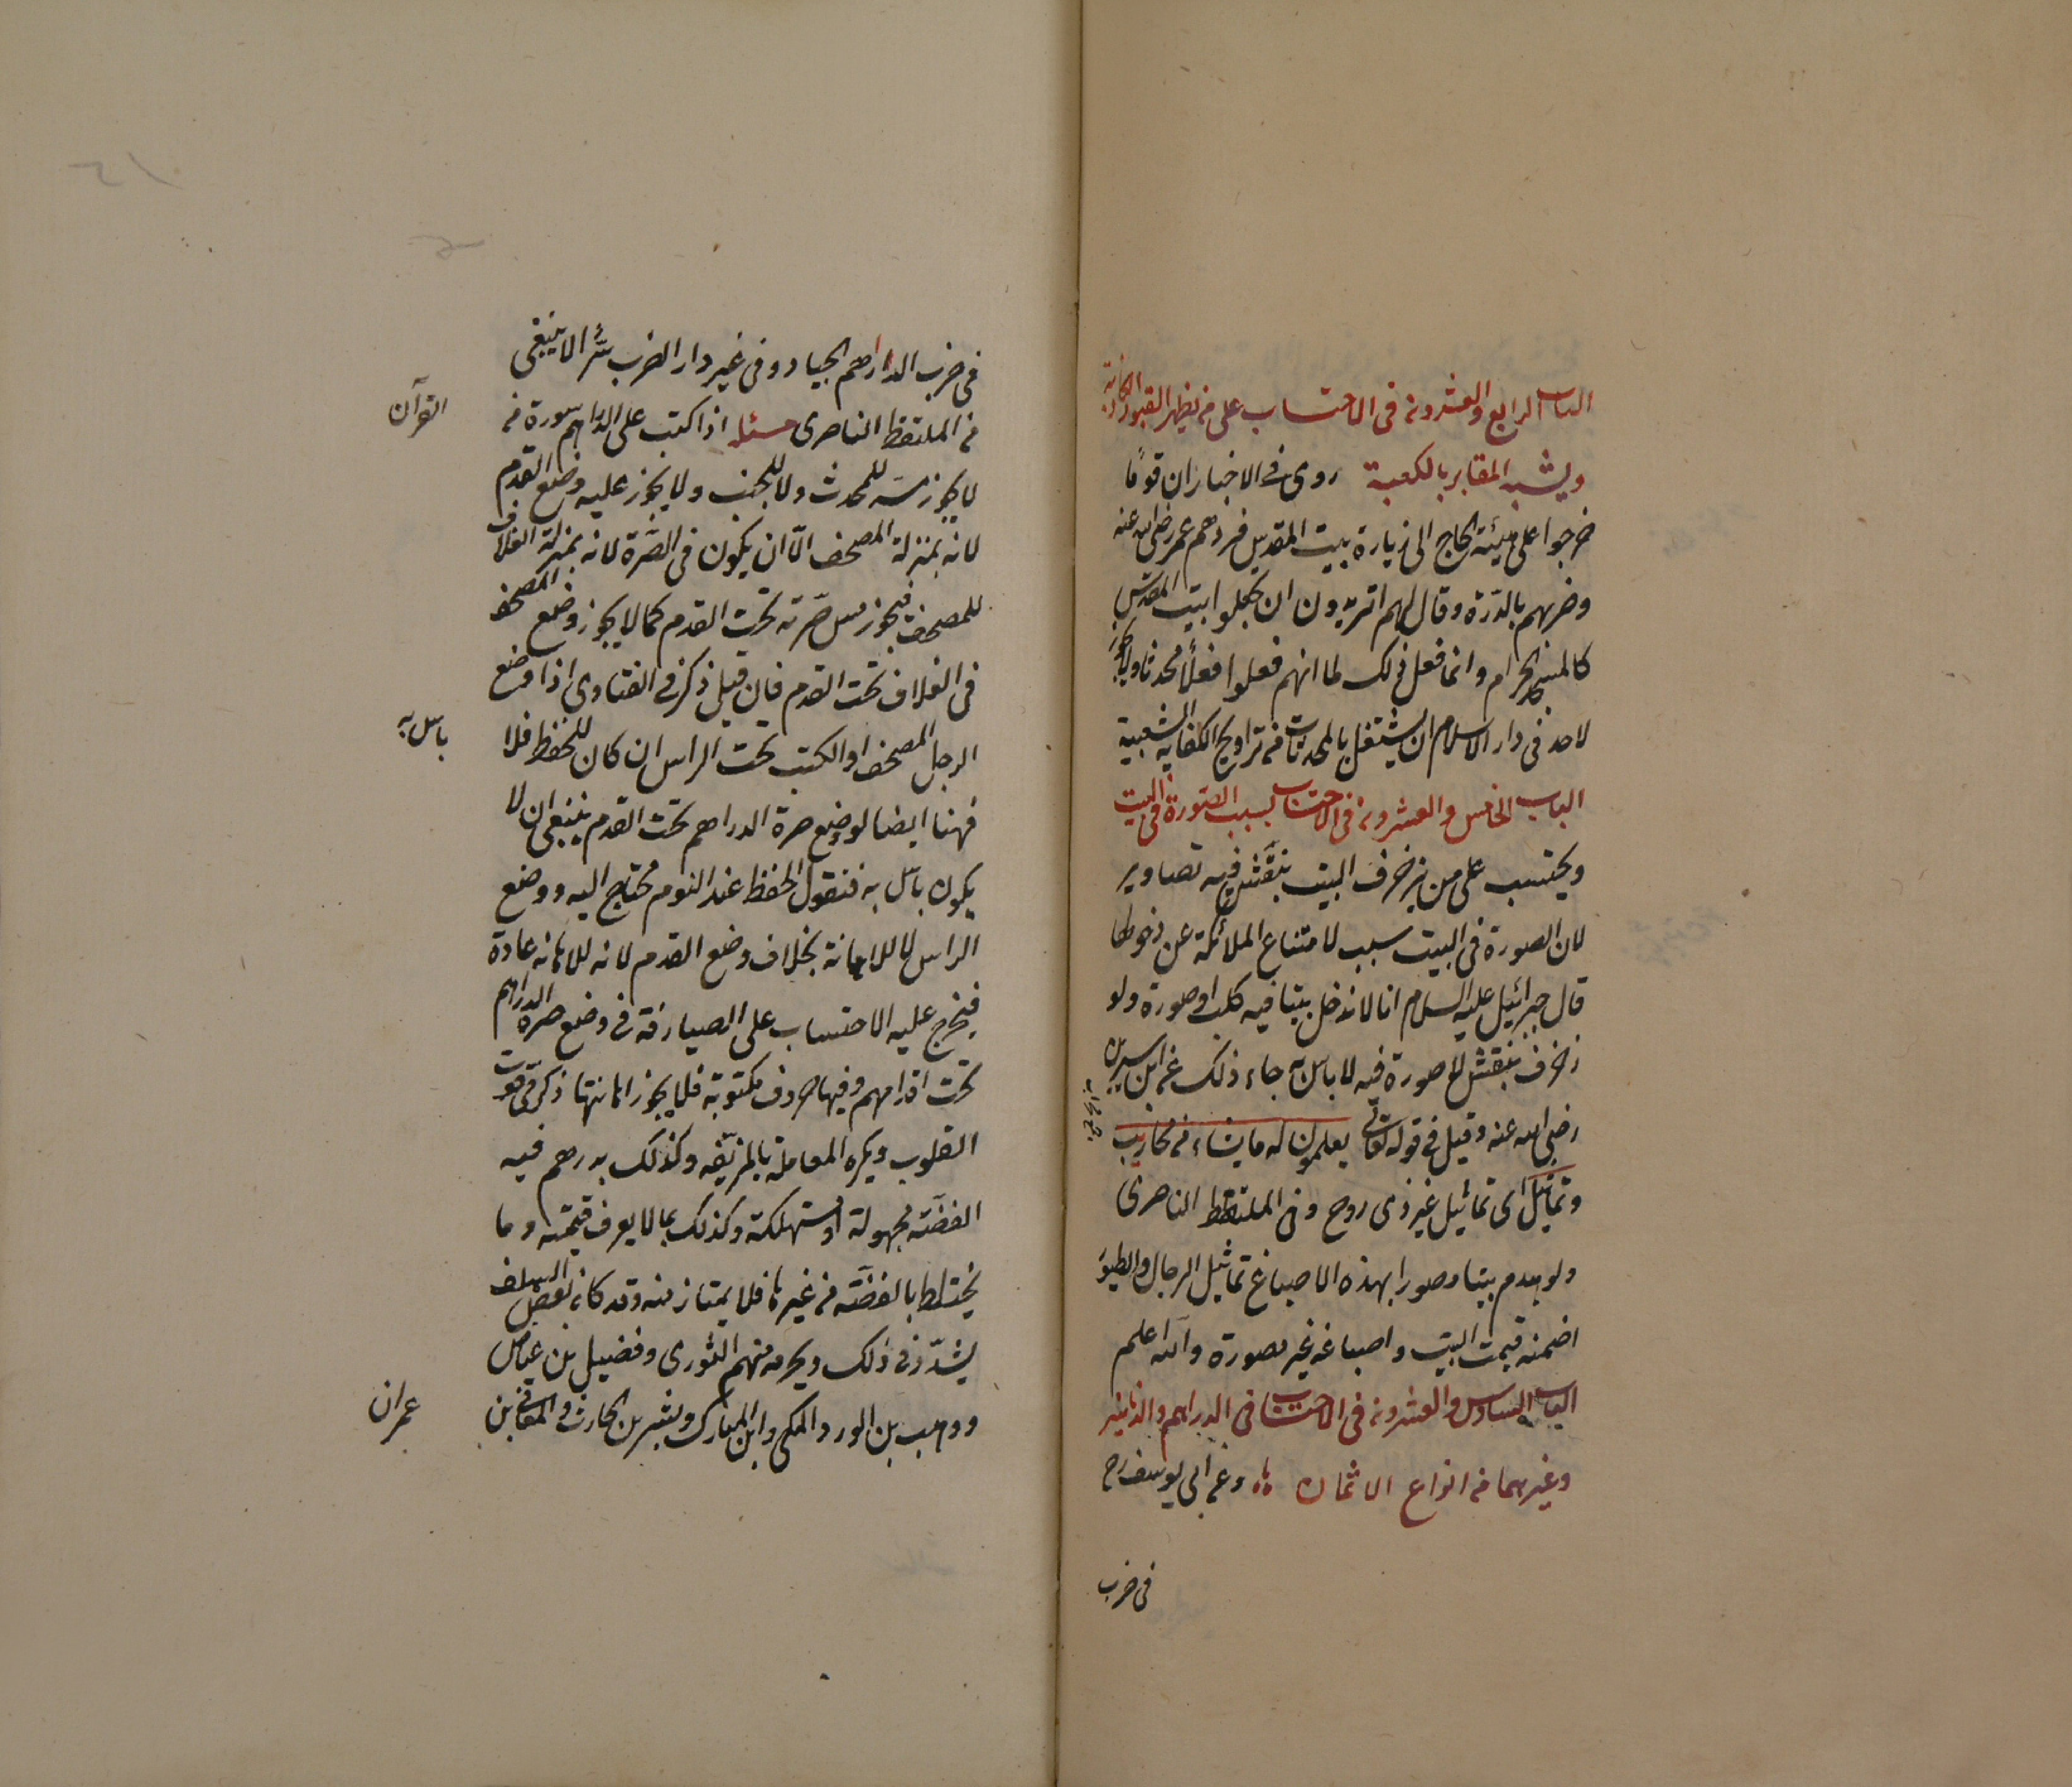 الباب الرابع والعشرون في الاحتساب على من يظهر القبور الكاذبة
ويشبه المقابر بالكعبة روى في الاخبار ان قوما
خرجوا على هيئة الحاج الى زيارة بيت المقدس فردهم عمر رضي الله عنه
وضربهم بالدرة وقال لهم اتريدون ان تجعلوا بيت المقدس
كالمسجد الحرام وانما فعل ذلك لما انهم فعلوا فعلا محدثا ولا يجوز
لاحد في دار الاسلام ان يشتغل بالمحدثات من تراويح الكفاية الشعبية
الباب الخامس والعشرون في الاحتساب بسبب الصورة في البيت
ويحتسب على من يزخرف البيت بنقش فيه تصاوير
لان الصورة في البيت سبب لامتناع الملائكة عن دخولها
قال جبرائيل عليه السلام انا لا ندخل بيتا فيه كلب او صورة ولو
زخرف بنقش لا صورة فيه لا باس به جاء ذلك عن ابن سيرين
رضي الله عنه وقيل في قوله تعالى يعلمون له ما يشاء من محاريب
وتماثيل اى تماثيل غير ذى روح وفي الملتقط الناصرى
ولو هدم بيتا مصورا بهذه الاصباغ تماثيل الرجال والطيور
اضمنه قيمت البيت واصباغه غير مصورة والله اعلم
الباب السادس والعشرون في الاحتساب في الدراهم والدنانير
وغيرهما من انواع الاثمان وعن ابى يوسف رح
في ضرب
في ضرب الدراهم الجياد وفي غير دار الضرب سرا لا ينبغى
من الملتقط الناصرى مسئلة اذا كتب على الدراهم سورة من
القرآن
لا يجوز مسه للمحدث ولا للجنب ولا يجوز عليه وضع القدم
لانه بمنزلة المصحف الا ان يكون في الصرة لانه بمنزلة الغلاف
للمصحف فيجوز مس صرته تحت القدم كما لا يجوز وضع المصحف
في الغلاف تحت القدم فان قيل ذكر في الفتاوى اذا وضع
الرجل المصحف او الكتب تحت الراس ان كان للحفظ فلا
باس به
فهنا ايضا لو وضع صرة الدراهم تحت القدم ينبغى ان لا
يكون باس به فنقول الحفظ عند النوم محتاج اليه ووضع
الراس لا للاهانة بخلاف وضع القدم لانه للاهانة عادة
فيخرج عليه الاحتساب على الصيارفة في وضع صرة الدراهم
تحت اقدامهم وفيها حروف مكتوبة فلا يجوز اهانتها ذكر في قوت
القلوب ويكره المعاملة بالمزيفة وكذلك بدرهم فيه
الفضة مجهولة او مستهلكة وكذلك بما لا يعرف قيمته وما
يختلط بالفضة من غيرها فلا يمتاز منه وقد كان بعض السلف
يشدد في ذلك ويحرمه منهم الثورى وفضيل بن عياض
ووهب بن الورد المكى وابن المبارك وبشر بن الحارث والمعافى بن
عمران